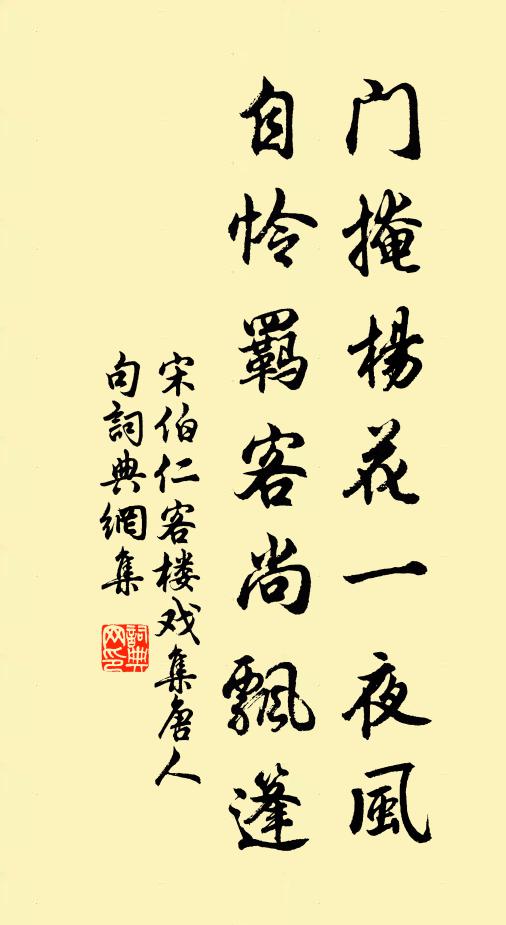 门掩楊花一夜風
自怜羁客尚飄蓬
宋伯仁客楼戏集唐人
句詞典網集
詞典网印